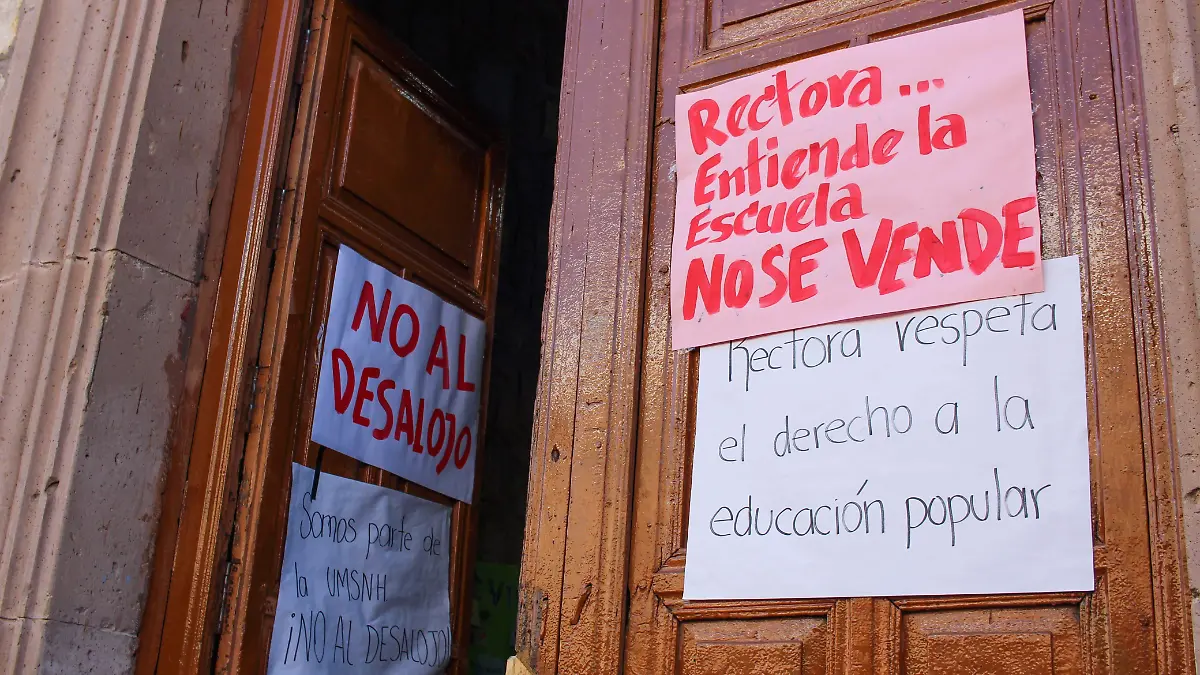 NO AL
DESALOJO
Somos parte de
la UMSNH
¡NO AL DESALOJO!
Rectora...
Entiende la
Escuela
NO SE VENDE
Rectora respeta
el derecho a la
educación popular